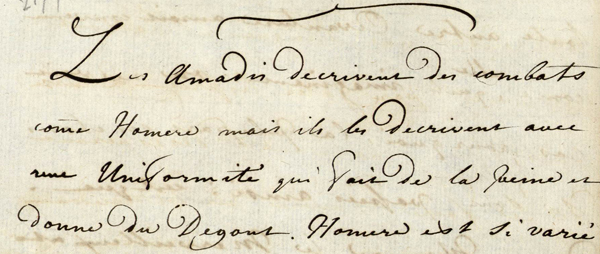 Les Amadis decrivent des combats
come Homere mais ils les decrivent avec
une Uniformité qui fait de la peine et
donne du Degout. Homere est si varié